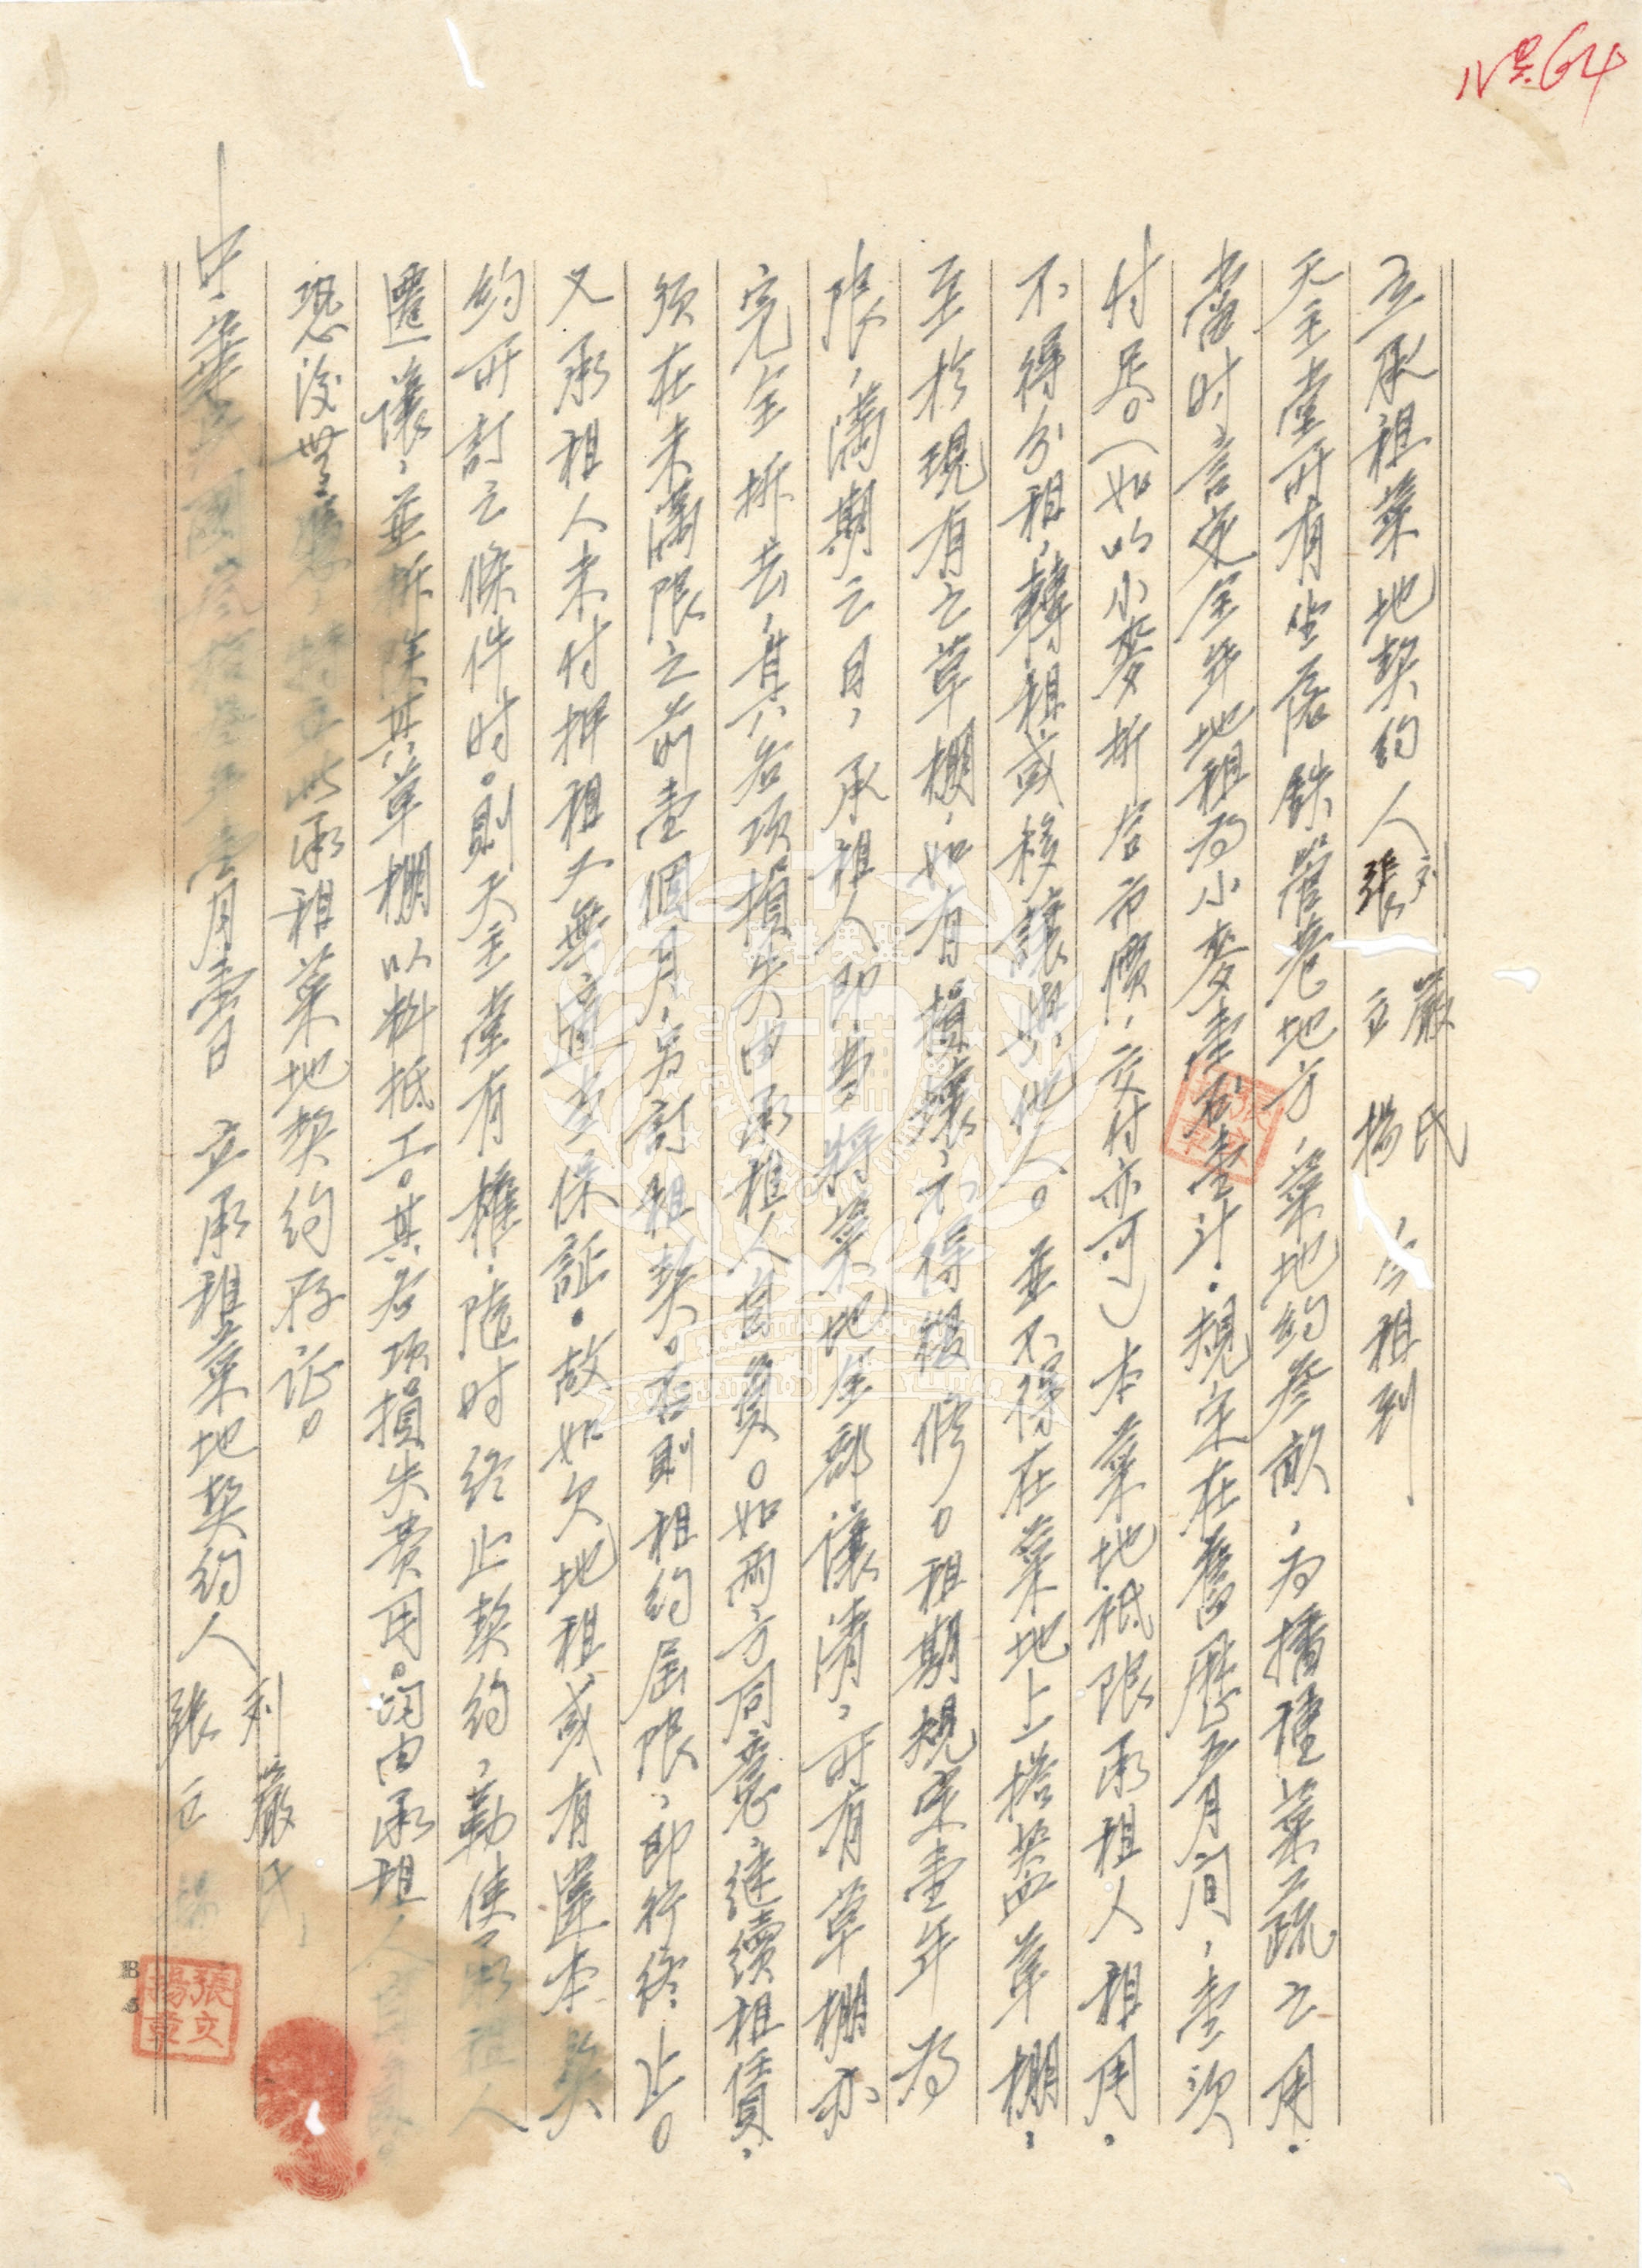 No.64
立承租菜地契約人劉嚴氏 張立揚 今租到
天主堂所有坐落鉄管巷地方,菜地約叁畝,為播種菜蔬之用.
當时言定全年地租為小麥壹石壹斗.規定在舊歷五月间,壹次
付足。(如以小麥折合市價,交付亦可)本菜地祇限承租人租用.
不得分租,轉租或移讓與他人。並不得在菜地上搭蓋草棚,
至於現有之草棚,如有損壞,不得複修。租期規定壹年為
限,滿期之日,承租人即要將菜地全部讓清,所有草棚亦
完全拆去,其各項損失由承租人自負。如兩方同意,継續租賃,
須在未滿限之前壹個月,另訂租契。否則租約屆限,即行終止。
又承租人未付押租又無店主保証.故如欠地租或有違本契
約所訂之條件时。則天主堂有權,隨时终止契約,勒使承租人
遷讓,並拆除其草棚以料抵工。其各項損失费用。均由承租人自負。
恐後無憑,特立此承租菜地契約存证。
中華民國叁拾叁年壹月壹日 立承租菜地契約人 劉嚴氏 張立揚
張文揚章
B5